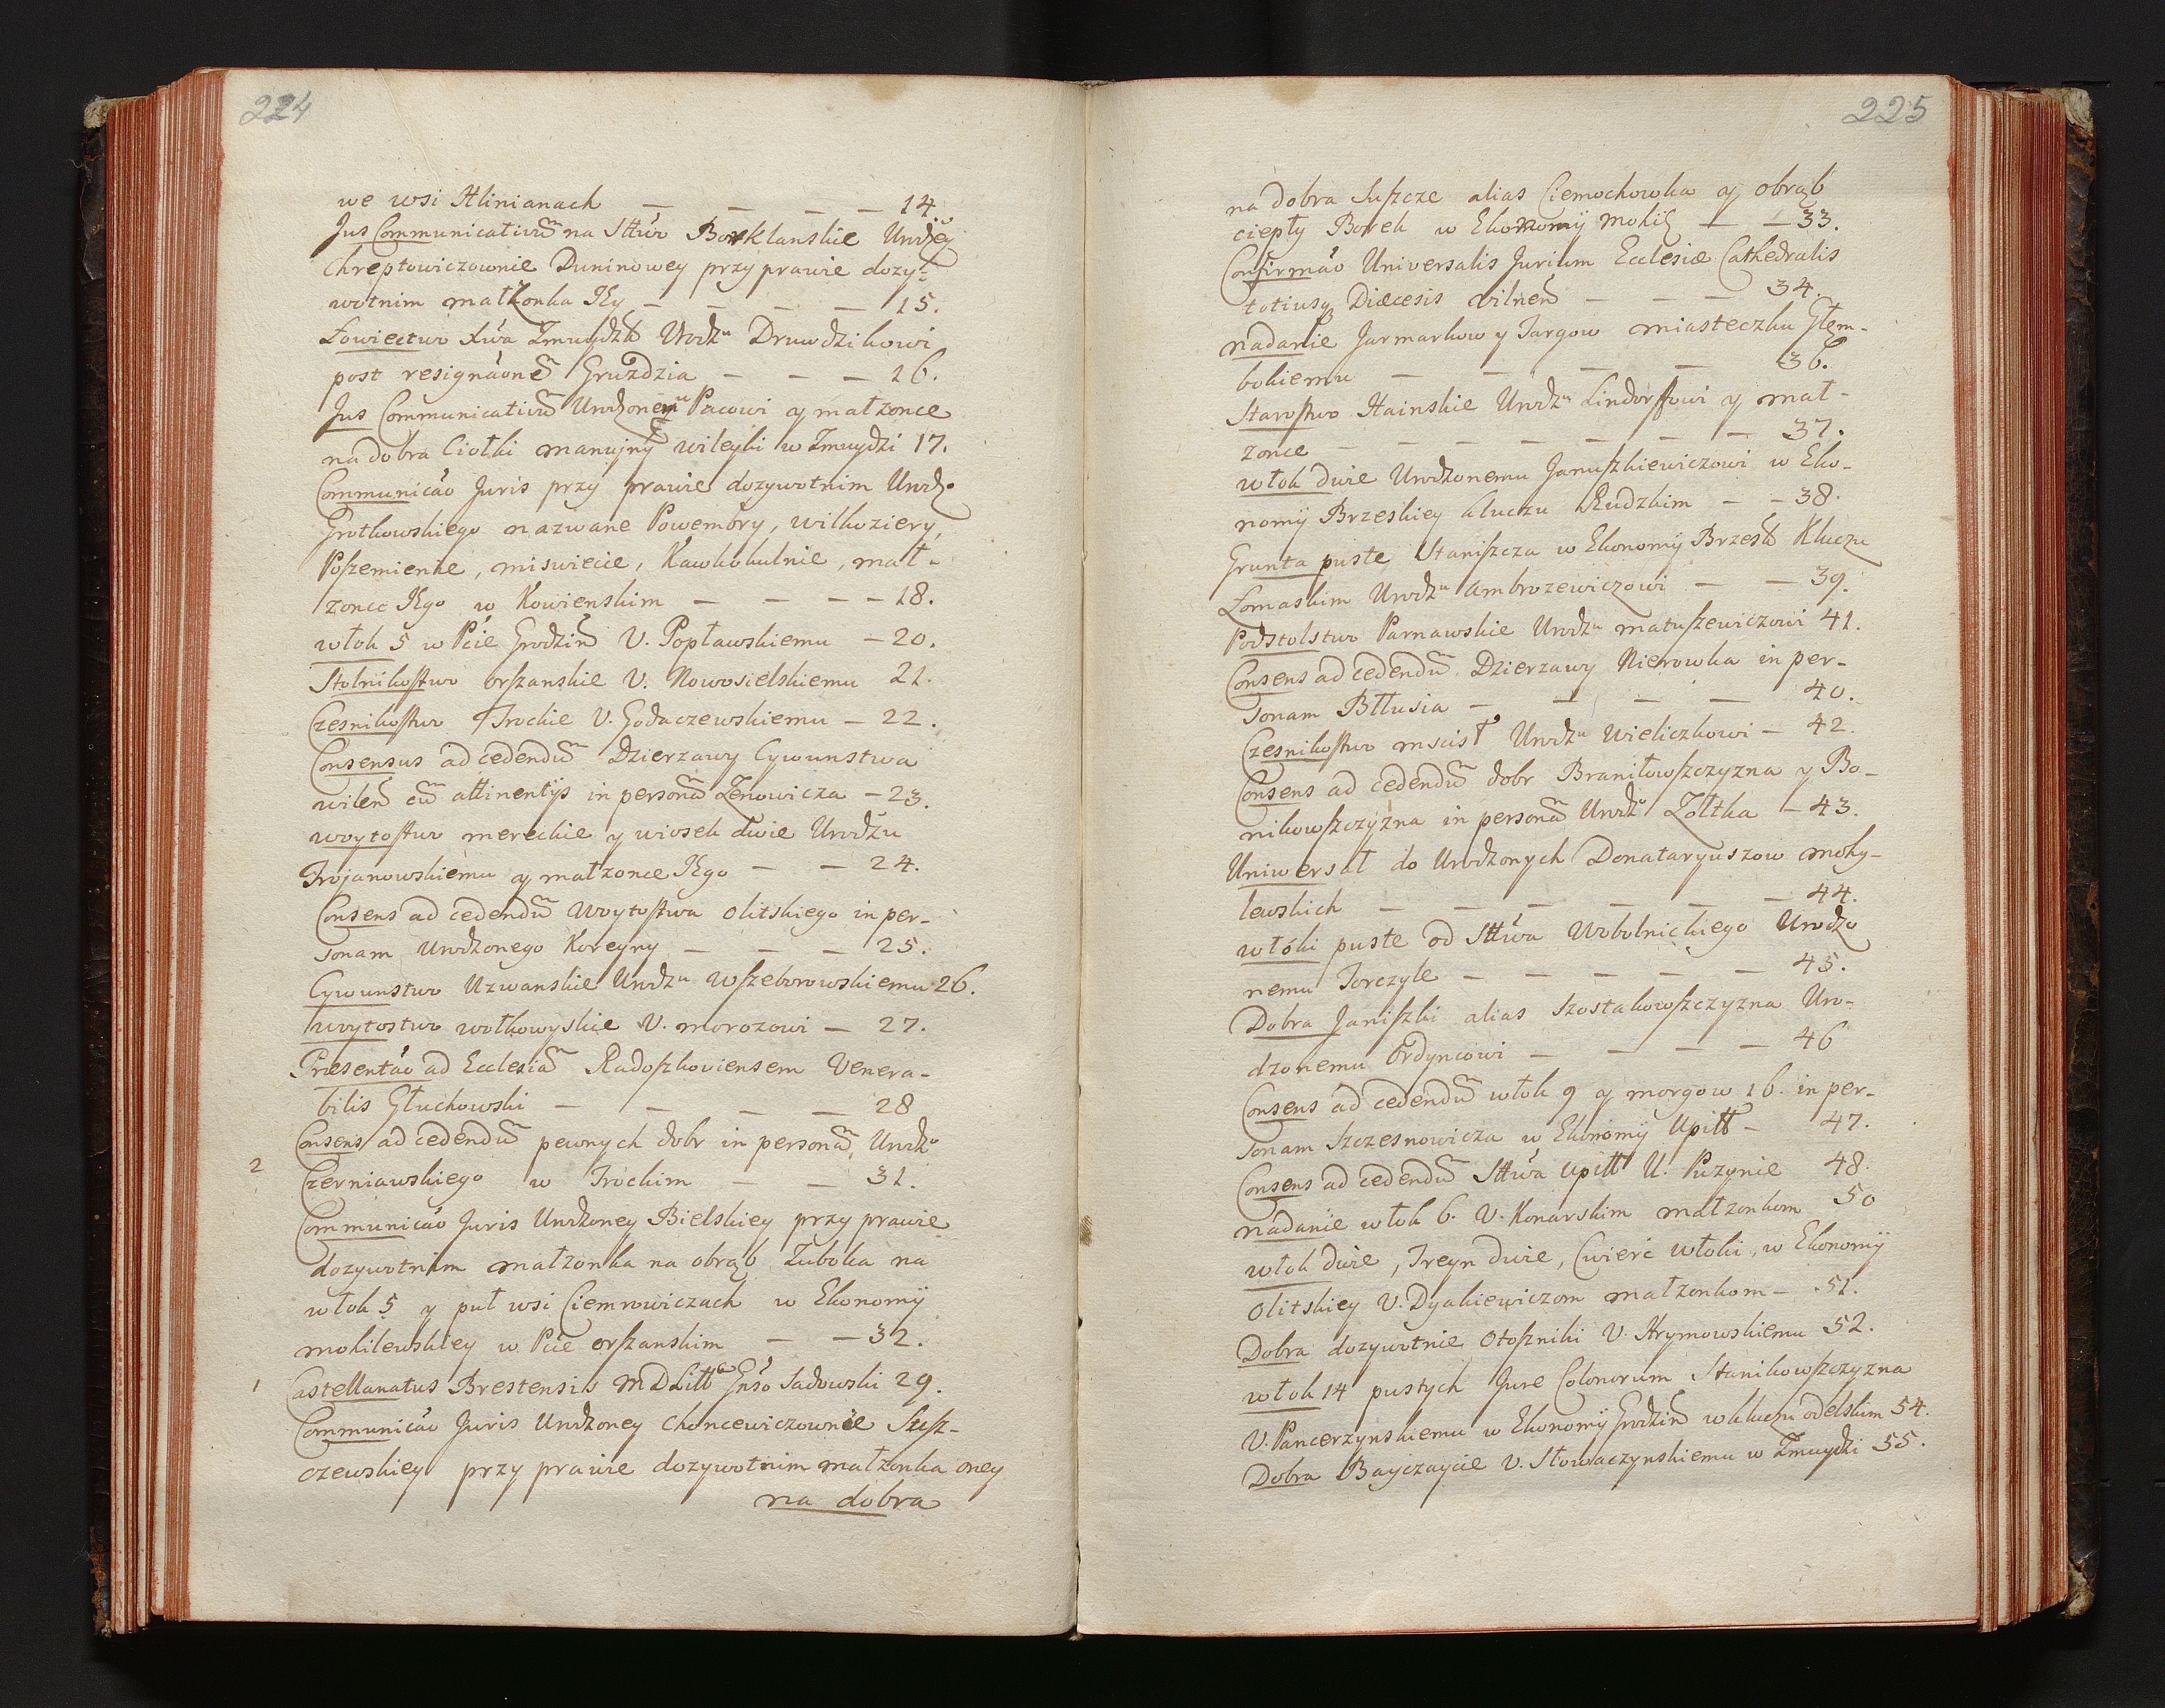 224
we wsi Hlinianach — — — — 14.
Jus Communicativũ na Sttwo Borklanskie Urdzey
Chreptowiczownie Duninowey przy prawie dozy-
wotnim małzonka Iey — — — — 15.
Łowiectwo Xtwa Zmuydzk Urodzu Druwdzikowi
post resignaõnẽ Gruzdzia — — — 16.
Jus Communicativũ Urdzonemu Pacowi y małzonce
na dobra Ciołki wileyki w Zmuydzi 17.
Communicaõ Juris przy prawie dozywotnim Urodz
Grotkowskiego nazwane Powembry, wilkoziery,
Poſzemienie, miswiecie, Kawkokulnie, mał-
zonce Iego w Kowienskim — — — — 18.
włok 5 w Pcie Grodziñ V. Popławskiemu — 20.
Stolnikoſtwo orſzanskie V. Nowosielskiemu 21.
Czesnikoſtwo Trockie V. Godaczewskiemu — 22.
Consensus ad cedendũ Dzierzawy Cywunstwa
wileñ cũ attinentÿs in personã Zenowicza — 23.
woytoſtwo mereckie y wiosek dwie Urodzu
Trojanowskiemu y małzonce Iego — — 24.
Consens ad cedendũ Woytoſtwa olitskiego in per-
sonam Urodzonego Koreyny — — — 25.
Cywunstwo Uzwanskie Urodzu Wſzeborowskiemu 26.
woytostwo wołkowyskie V. morozowi — 27.
Presentaõ ad Ecclesiã Radoſzkoviensem Venera-
bilis Głuchowski — — — — 28
Consens ad cedendũ pewnych dobr in personã Urodzo
2 Czerniawskiego w Trockim — — 31.
Communicaõ Juris Urdzoney Bielskiey przy prawie
dozywotnim małzonka na obrąb Zuboka na
włok 5 y puł wsi Ciemrowiczach w Ekonomÿ
mohilewskiey w Pcie orſzanskim — — 32.
1 Castellanatus Brestensis MDLitt Gnso Sadowski 29.
Communicaõ Juris Urdzoney Choncewiczownie Suſz-
czewskiey przy prawie dozywotnim małzonka oney
na dobra
225
na dobra Suſzcze alias Ciemochowka y obrąb
ciepły Borek w Ekonomÿ Mohil — — 33.
Confirmaõ Universalis Jurium Ecclesiæ Cathedralis
totiusq Diæcesis vilneñ — — — 34.
nadanie Jarmarkow y Targow miasteczku Głem-
bokiemu — — — — 36.
Staroſtwo Hainskie Urodzu Lindorffowi y mał-
zonce — — — — — — 37.
włok dwie Urodzonemu Januſzkiewiczowi w Eko-
nomÿ Brzeskiey kluczu Rudzkim — — 38.
Grunta puste Staniſzcza w Ekonomÿ Brzesk Kluczu
Łomaskim Urodzu Ambrozewiczowi — — 39.
Podstolstwo Parnawskie Urodzu matuſzewiczowi 41.
Consens ad cedendũ Dzierzawy Nierowka in per-
sonam Bttusia — — — — 40.
Czesnikoſtwo mscisł Urodzu Wieliczkowi — 42.
Consens ad cedendũ dobr Braniłowſzczyzna y Bo-
nikowſzczyzna in personã Urodz Zołtka — 43.
Uniwersał do Urodzonych Donataryuszow mohy-
lewskich — — — — — — 44.
włóki puste od Sttwa Wobolnickiego Urodzo
nemu Torczyle — — — — — 45.
Dobra Janiſzki alias Szostakowſzczyzna Uro-
dzonemu Ordyncowi — — — — 46
Consens ad cedendũ włok 9 y morgow 16. in per-
sonam Szczesnowicza w Ekonomÿ Upitt — 47.
Consens ad cedendũ Sttwa Upitt U. Puzynie 48.
nadanie włok 6. V. Konarskim małzonkom 50
włok dwie, Treyn dwie, Cwierć włoki, w Ekonomÿ
Olitskiey V. Dyakiewiczom małzonkom — 51.
Dobra dozywotnie Otoſzniki V. Hrymowskiemu 52.
włok 14 pustych Jure Colonorum Stanikowſzczyzna
V. Pancerzynskiemu w Ekonomÿ Grodziñ w kluczu odelskim 54.
Dobra Bayczaycie V. Słowaczynskiemu w Zmuydzi 55.